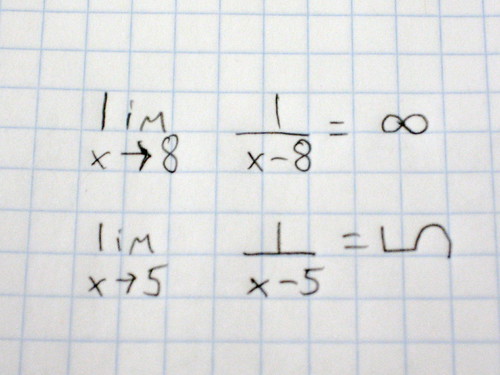 lim x→8 1/(x-8) = ∞
lim x→5 1/(x-5) = ᔕ